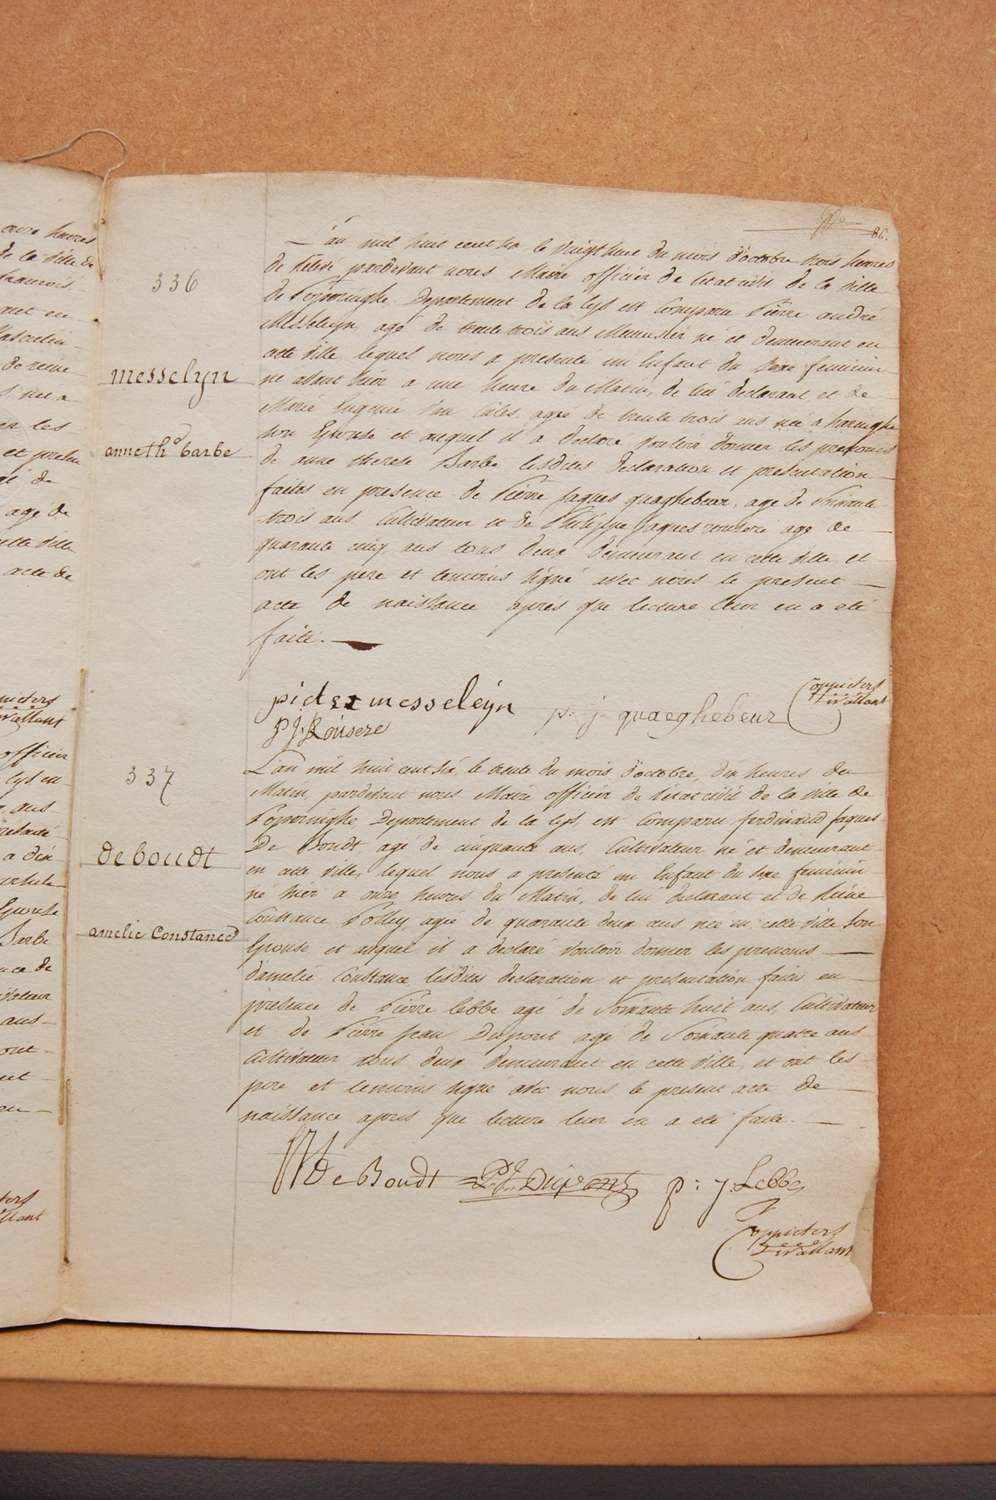 86.
336
messelyn
anne th.e barbe
L'an mil huit cent six le vingt huit du mois d'octobre trois heures
de relevé pardevant nous Maire officier de l'état civil de la ville
de Poperinghe Departement de la Lys est comparu Pierre André
Messelyn, agé de trente trois ans Menusier né et demeurant en
cette ville lequel nous a presenté un Enfant du sexe feminin
né avant hier a une heure du Matin, de lui declarant et de
Marie Eugenie agée de trente trois ans née a haringhe
son Epouse et auquel il a declaré vouloir donner les prenoms
de anne therese Barbe lesdites declaration et presentation
faites en presence de Pierre Jaques quaghebeur, agé de soixante
trois ans, Cultivateur et de Philippe Jaques rousere agé de
quarante cinq ans tous deux demeurant en cette ville et
ont les pere et temoins signé avec nous le present
acte de naissance après que lecture leur en a eté
faite.
pieter messeleyn
p: j: quaeghebeur
Coppieters
Ervallant
P J: Rousere
337
de boudt
amelie Constance
L'an mil huit cent six, le trente du mois d'octobre, dix heures du
Matin pardevant nous Maire officier de l'etat civil de la ville de
Poperinghe Departement de la Lys, est Comparu ferdinand Jaques
De Boudt agé de cinquante ans, Cultivateur né et demeurant
en cette ville, lequel nous a presenté un Enfant du sexe feminin
né hier a onze heures du Matin, de lui declarant et de
Constance Folley, agée de quarante deux ans née en cette ville, son
Epouse et auquel il a declaré vouloir donner les prenoms
d'amelie Constance lesdites declaration et presentation faites en
presence de Pierre lebbe agé de soixante huit ans, Cultivateur
et de Pierre Jean Dupont agé de soixante quatre ans
Cultivateur tous deux demeurant en cette ville, et ont les
pere et temoins signé avec nous le present acte de
naissance apres que lecture leur en a eté faite.
De Boudt
P J: Dupont
p: j Lebbe
Coppieters
Ervallant